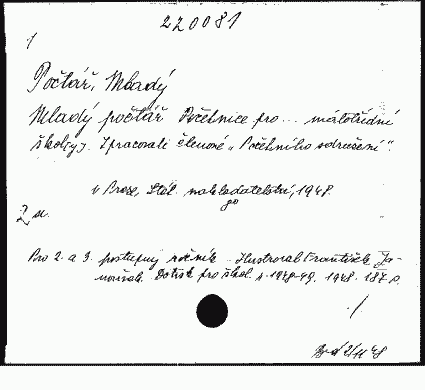 220081
1
Počtář, Mladý
Mladý počtář Početnice pro... málotřídní
školy. Zpracovali členové „Početního sdružení".
V Praze, Stát. nakladatelství, 1948.
2 sv.
Pro 2. a 3. postupný ročník. Ilustroval František Ja-
noušek. Dotisk pro škol. r. 1948-49. 1948. 187 s.
./.
48